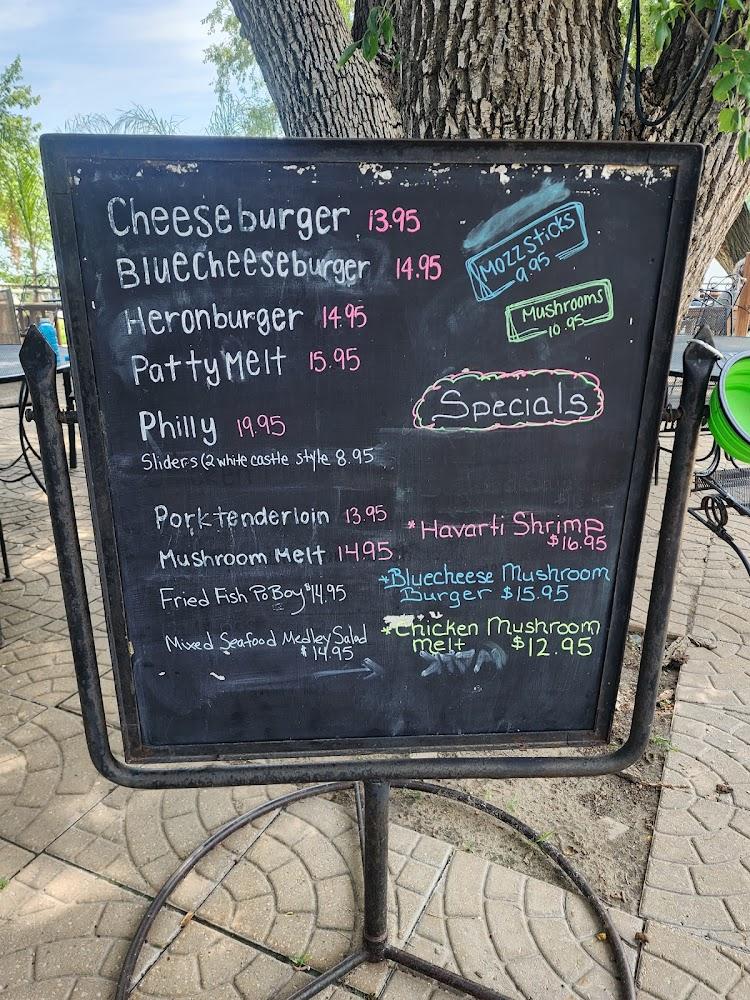 Cheeseburger 13.95
Bluecheeseburger 14.95
Heronburger 14.95
Patty Melt 15.95
Philly 19.95
Sliders (2 white castle style 8.95
Porktenderloin 13.95
Mushroom Melt 14.95
Fried Fish PoBoy $14.95
Mixed Seafood Medley Salad
$14.95
Mozz Sticks
9.95
Mushrooms
10.95
Specials
*Havarti Shrimp
$16.95
*Bluecheese Mushroom
Burger $15.95
*Chicken Mushroom
melt $12.95